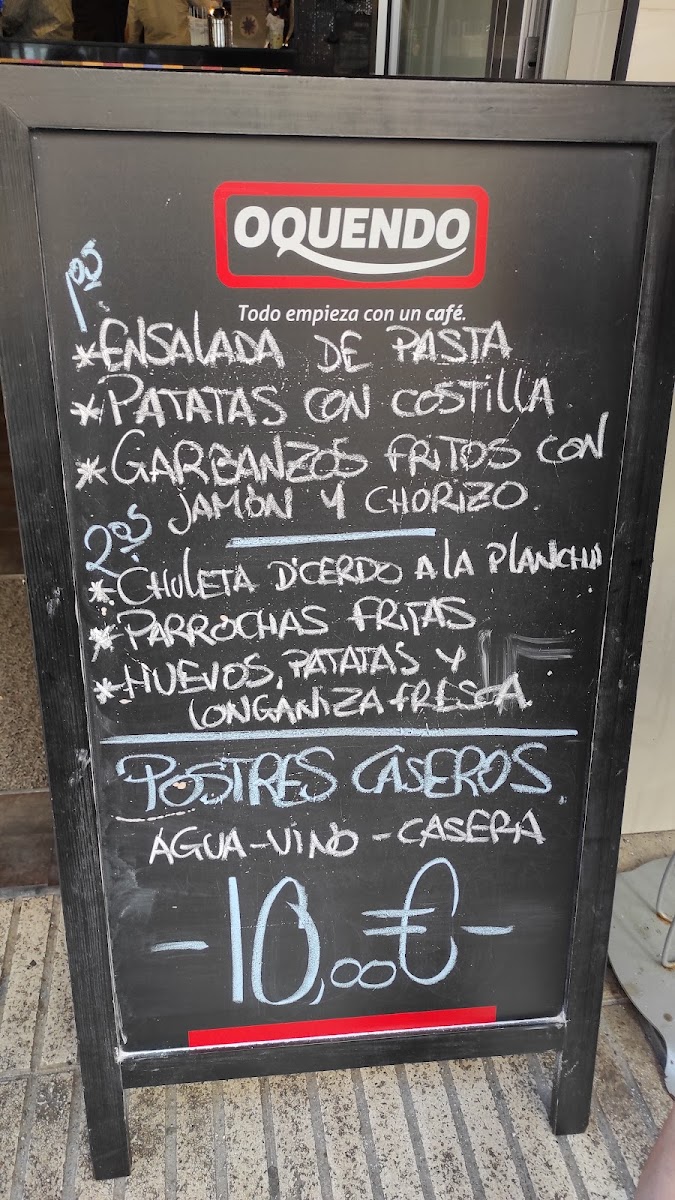 OQUENDO
Todo empieza con un café.
1os
*ENSALADA DE PASTA
*PATATAS CON COSTILLA
*GARBANZOS FRITOS CON
JAMÓN Y CHORIZO
2os
*CHULETA D'CERDO A LA PLANCHA
*PARROCHAS FRITAS
*HUEVOS, PATATAS Y
LONGANIZA FRESCA
POSTRES CASEROS
AGUA-VINO-CASERA
-10,00€-